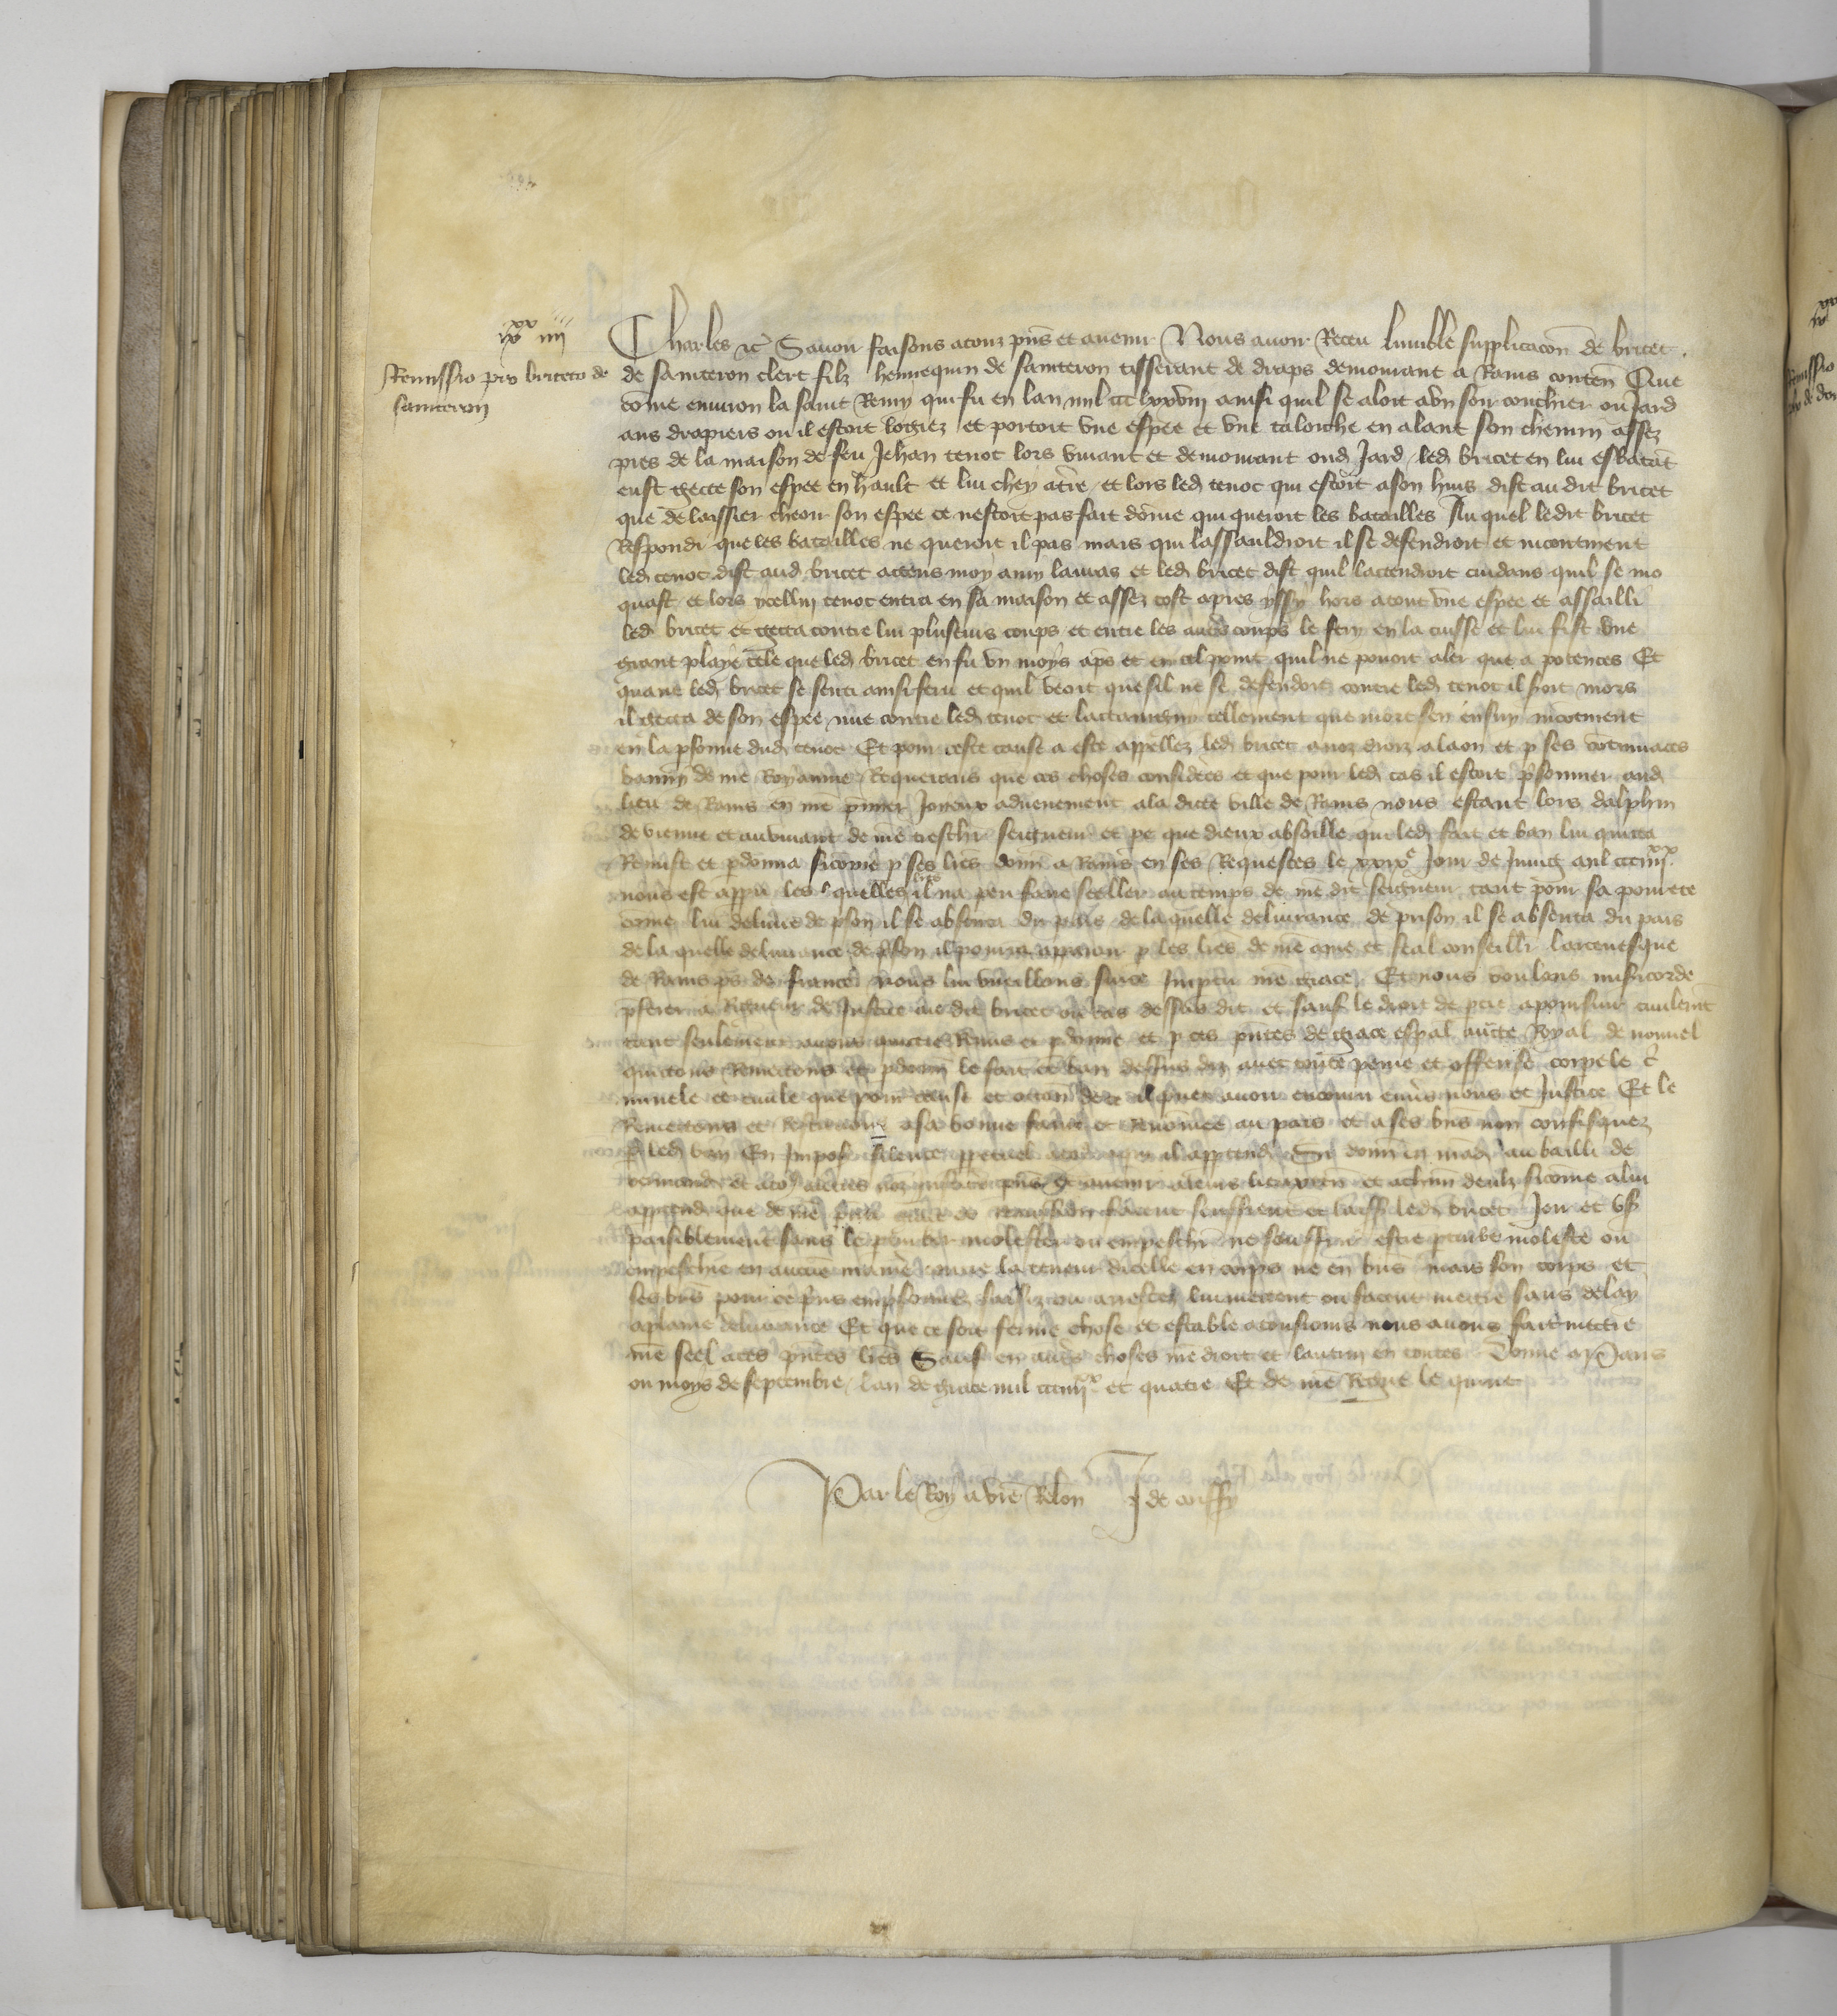 iiii xx iiii
Remissio pro briceto de
sainteron
Charles &c Savoir faisons a touz pñs et avenir Nous avoir Receu lumble supplicacoñ de bricet
de sainteron clerc filz hennequin de sainteron tisserant de draps demourant a Rains conteñ Que
cōme environ la saint Remy qui fu en lan mil ccc lxxviii ainsi quil se aloit a vn soir couchier ou Jard
aus drapiers ou il estoit logiez et portoit vne espee et vne taloiche en alant son chemin assez
pres de la maison de feu Jehan tenot lors vivant et demourant oud Jard led bricet en lui esbatāt
eust gecte son espee en hault et lui chey a tere et lors led tenot qui estoit a son huis dist au dit bricet
que de laissier cheoir son espee ce nestoit pas fait dōme qui queroit les batailles Au quel le dit bricet
Respondi que les batailles ne queroit il pas mais qui lassauldroit il se defendroit et incontinent
led tenot dist aud bricet attens moy cuy lauras et led bricet dist quil lattendroit cuidans quil se mo
quast et lors ycellui tenot entra en sa maison et assez tost apres yssy hors atout vne espee et assailli
led bricet et gecta contre lui plusieurs coups et entre les aucs coups le fery en la cuisse et lui fist vne
grant playe tele que led bricet en fu vn moys aps et en tel point quil ne povoit aler que a potences Et
quant led bricet se senti ainsi feru et quil veoit que sil ne se defendoit contre led tenot il soit mors
il gecta de son espee nue contre led tenot et lattaingny tellement que mort sen ensuy incōtinent
en la psonne dud tenot Et pour ceste cause a este appellez led bricet a noz droiz a laon et p ses cōtumaces
banny de nrē Royaume Requerans que ces choses considees et que pour led cas il estoit psonnier aud
lieu de Rains en nrē pmier Joyeux advenement a la dicte ville de Rains nous estant lors dalphin
de vienne et au vivant de nrē treschr seigneur et pe que dieux absoille qui led fait et ban lui quicta
Remist et pdonna sicome p ses lrēs donn a Rains en ses Requestes le xxixe Jour de Juing m ccc iiii xx
nous est appu les quelles lrēs il na peu faire seeller au temps de nrē dit seigneur tant pour sa povrete
come lui delivre de pson il se absenta du pais de la quelle delivrance de prison il se absenta du pais
de la quelle delivrance de pson il pourra apparoir p les lrēs de nrē ame et feal conseilli larcevesque
de Rains ps de france nous lui vueillons sur ce Impti nrē grace Et nous voulans misicorde
pferer a Rigueur de Justice au dit bricet ou cas dessus dit et sauf le droit de ptie a poursuir civilemt
tant seulement avons quictie Remis et pdonne et p ces pntes de grace espal auctte Royal de nouvel
quictons Remectons et pdonn le fait et ban dessus diz avec toute peine et offense corpele c
minele et civile que pour cause et occon de ce il puet avoir encouru envs nous et Justice Et le
Remectons et restituons a sa bonne fame et renomee au pais et a ses bns non confisquez
p led ban En Impos silence ppetuel a tous a qui il apptend Si donn en mand au bailli de
vermend et a to autres noz justic pns et avenir a leurs lieuxten et a chun deulz sicome a lui
apptend que de nrē pnte grace et remission facent seuffrent et laiss led bricet Jou et vs
paisiblement sans le ptourber molester ou empeschr ne souffrir estre ptourbe moleste ou
empeschie en aucue maniè contre la teneur dicelle en corps ne en bns mais son corps et
ses bns pour ce pris emprisonnez saisiz ou arrestez lui mectent ou facent mectre sans delay
a plaine delivrance Et que ce soit ferme chose et estable a tousiours nous avons fait mectre
nrē seel a ces pntes lrēs Sauf en autres choses nrē droit et lautruy en toutes Donne a Paris
ou moys de septembre lan de grace mil ccc iiii xx et quatre Et de nrē Regne le quint
Par le Roy a vrē Relon J de couffy